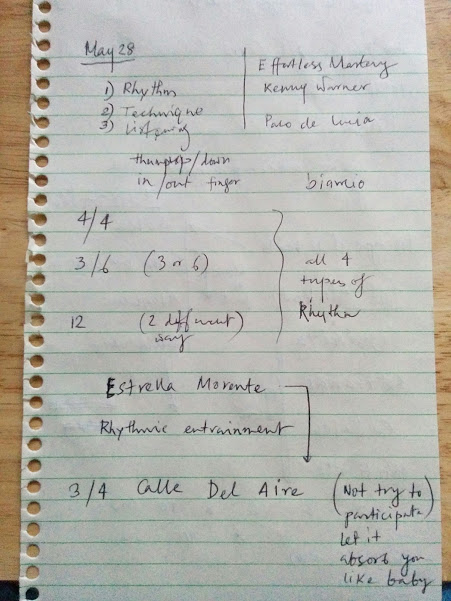 May 28
1) Rhythm
2) Technique
3) Listening
Effortless Mastery
Kenny Werner
Paco de Lucia
thumb up/down
in/out finger
4/4
3/6 (3 or 6)
12 (2 different
way)
all 4
types of
Rhythm
Estrella Morente
Rhythmic entrainment
3/4 Calle Del Aire
(Not try to)
participate
let it
absorb you
like baby